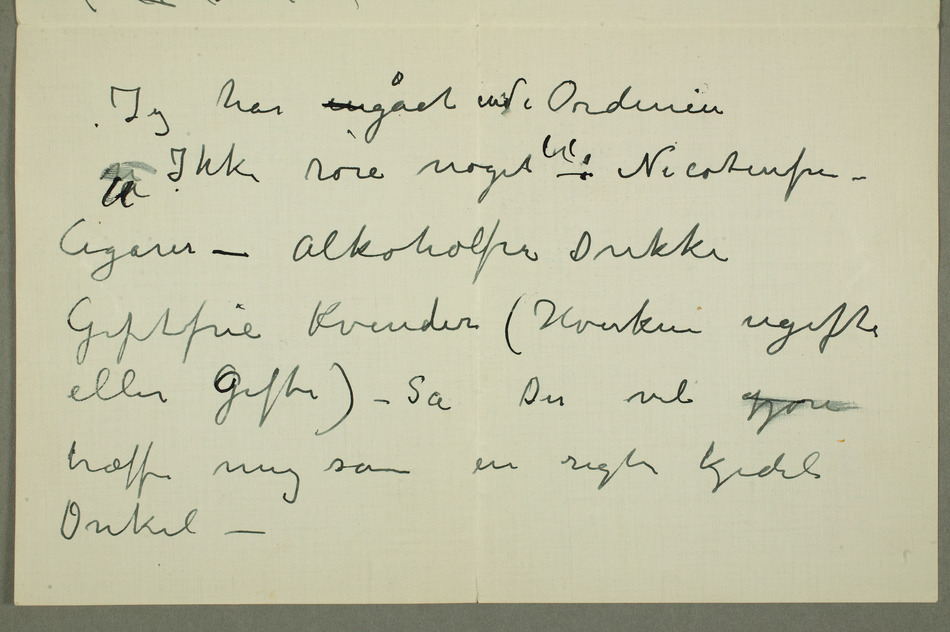 Jeg har gået ind i Ordenen
Ikke röre noget Nicotinfrie
Cigarer — Alkoholfrie Drikke
Giftfrie Kvinder (Hverken ugifte
eller Gifte) – Så De vil gjøre
træffe mig som en rigtig kjedelig
Onkel —